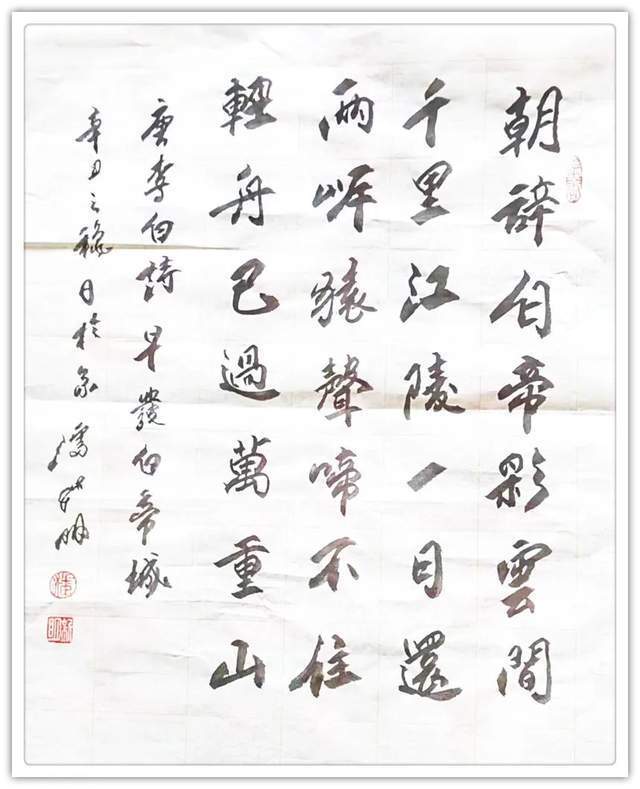 朝辞白帝彩雲間
千里江陵一日還
兩岸猿聲啼不住
輕舟已過萬重山
唐李白詩早發白帝城
辛丑之秋日於
明